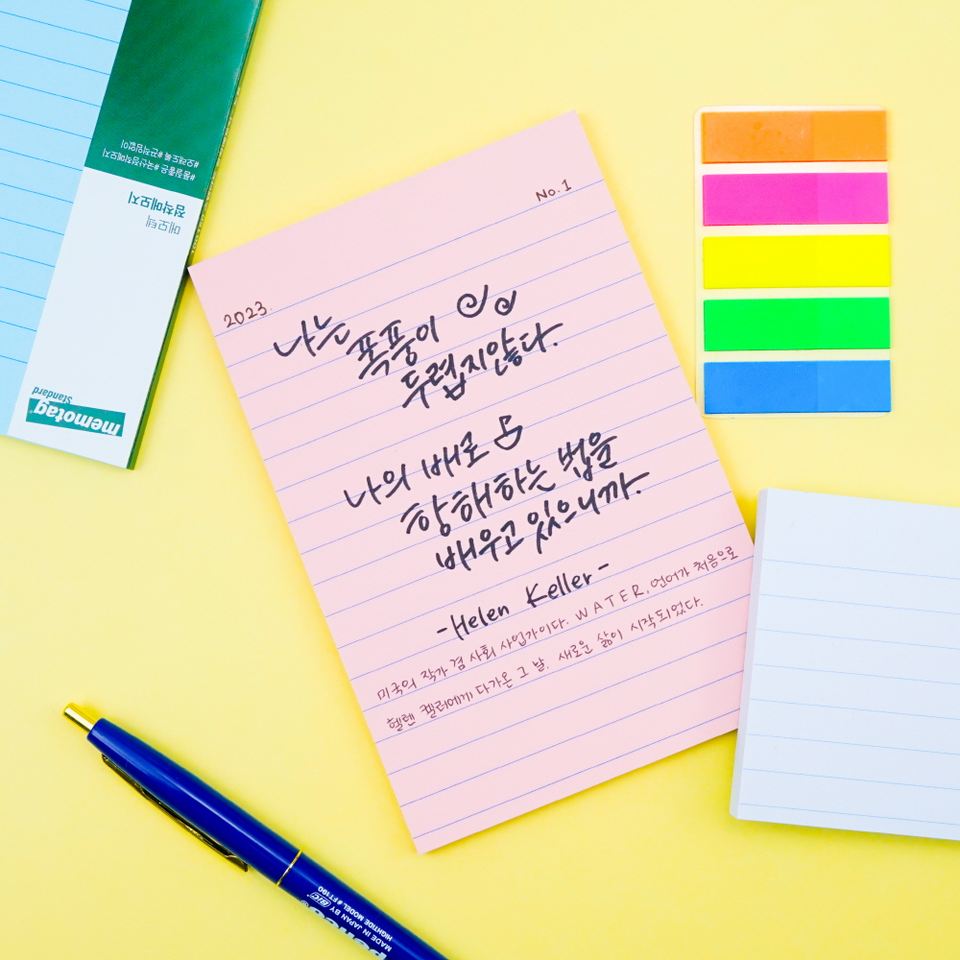 No. 1
2023.
나는 폭풍이
두렵지않다.
나의 배로
항해하는 법을
배우고 있으니까.
-Helen Keller-
미국의 작가 겸 사회 사업가이다. WATER, 언어가 처음으로
헬렌 켈러에게 다가온 그 날. 새로운 삶이 시작되었다.
#품질좋은#국산점착메모지
#오래도록#끈적임없이
메모텍
점착메모지
memotag
Standard
penco®
MADE IN JAPAN BY BIC
HIGHTIDE MODEL #FT190